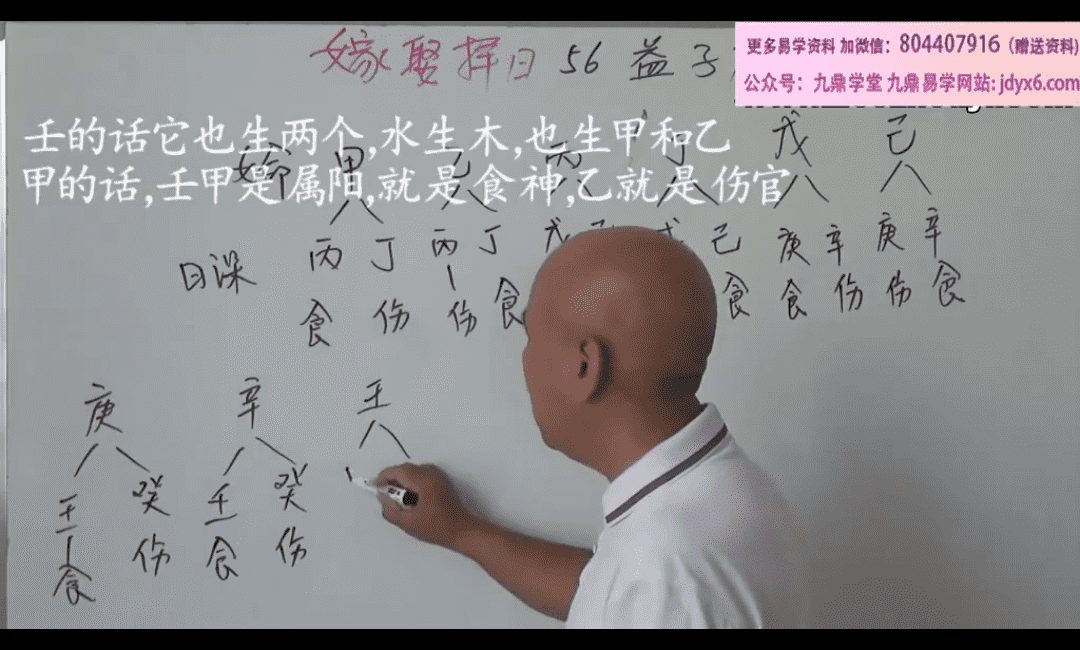 嫁娶择日 56 益子
更多易学资料 加微信：804407916（赠送资料）
公众号：九鼎学堂 九鼎易学网站: jdyx6.com
壬的话它也生两个,水生木,也生甲和乙
甲的话,壬甲是属阳,就是食神,乙就是伤官
命 甲 乙 丙 丁 戊 己
日课 丙 丁 丙 丁 戊 己 庚 辛 庚 辛
食 伤 伤 食 食 食 伤 伤 食
庚 辛 壬
壬 癸 壬 癸
食 伤 食 伤